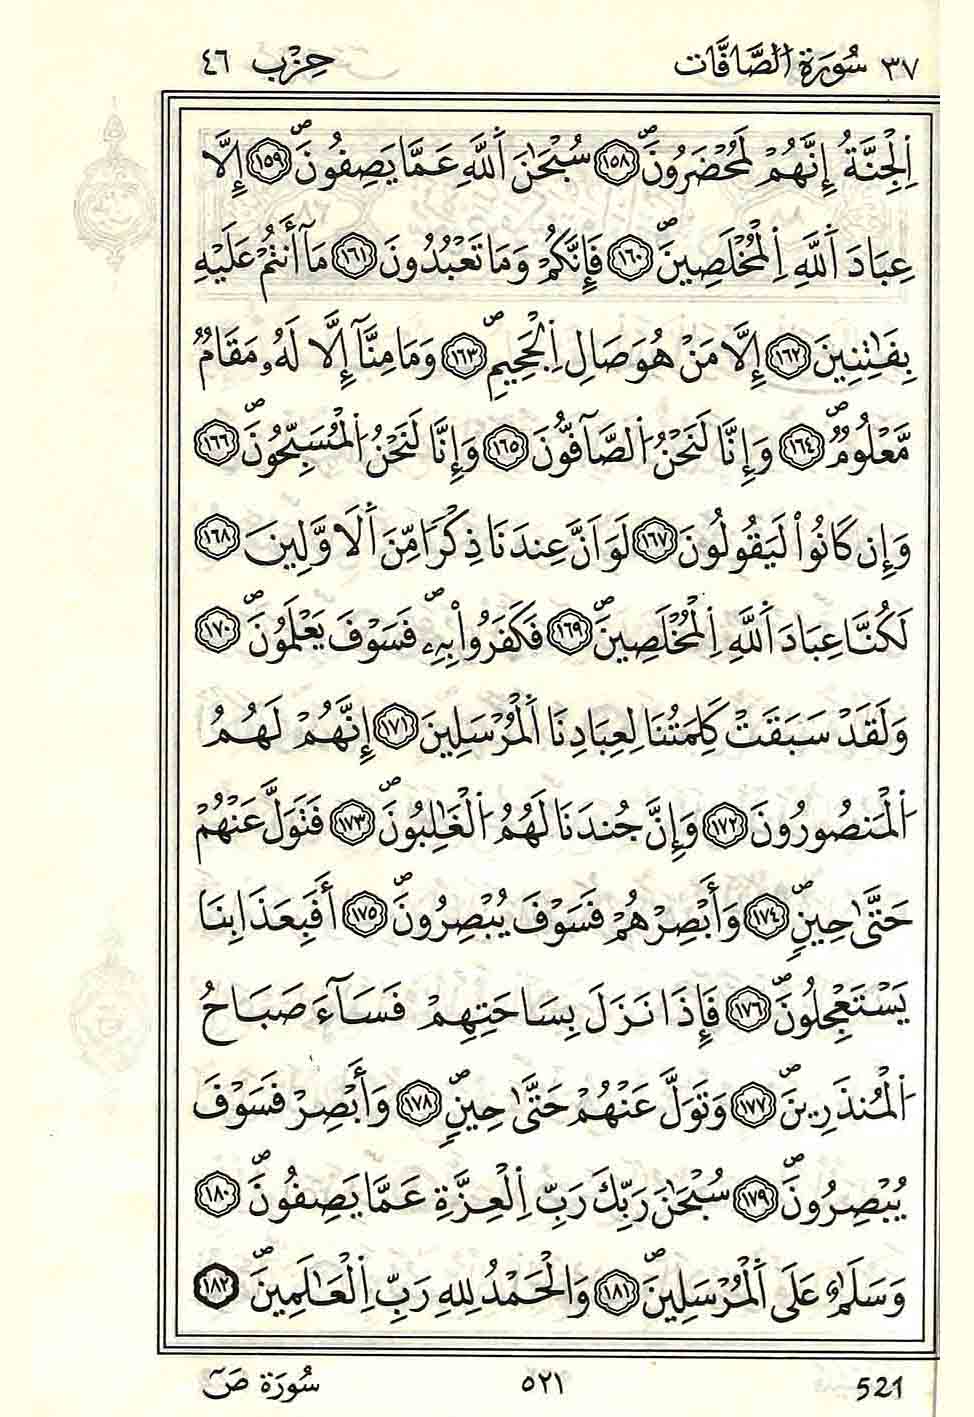 ٣٧ سُورَةُ الصَّافَّات حِزْب ٤٦
اِ۬لْجِنَّةُ إِنَّهُمْ لَمُحْضَرُونَۖ ١٥٨ سُبْحَٰنَ اَ۬للَّهِ عَمَّا يَصِفُونَۖ ١٥٩ إِلَّا
عِبَادَ اَ۬للَّهِ اِ۬لْمُخْلَصِينَۖ ١٦٠ فَإِنَّكُمْ وَمَا تَعْبُدُونَ ١٦١ مَآ أَنتُمْ عَلَيْهِ
بِفَٰتِنِينَ ١٦٢ إِلَّا مَنْ هُوَ صَالِ اِ۬لْجَحِيمِۖ ١٦٣ وَمَا مِنَّآ إِلَّا لَهُۥ مَقَامٌ
مَّعْلُومٌۖ ١٦٤ وَإِنَّا لَنَحْنُ اُ۬لصَّآفُّونَ ١٦٥ وَإِنَّا لَنَحْنُ اُ۬لْمُسَبِّحُونَۖ ١٦٦
وَإِن كَانُواْ لَيَقُولُونَ ١٦٧ لَوَ اَنَّ عِندَنَا ذِكْرًا مِّنَ اَ۬لَاوَّلِينَ ١٦٨
لَكُنَّا عِبَادَ اَ۬للَّهِ اِ۬لْمُخْلَصِينَۖ ١٦٩ فَكَفَرُواْ بِهِۦۖ فَسَوْفَ يَعْلَمُونَۖ ١٧٠
وَلَقَدْ سَبَقَتْ كَلِمَتُنَا لِعِبَادِنَا اَ۬لْمُرْسَلِينَ ١٧١ إِنَّهُمْ لَهُمُ
اُ۬لْمَنصُورُونَ ١٧٢ وَإِنَّ جُندَنَا لَهُمُ اُ۬لْغَٰلِبُونَۖ ١٧٣ فَتَوَلَّ عَنْهُمْ
حَتَّىٰ حِينٍۖ ١٧٤ وَأَبْصِرْهُمْ فَسَوْفَ يُبْصِرُونَۖ ١٧٥ أَفَبِعَذَابِنَا
يَسْتَعْجِلُونَۖ ١٧٦ فَإِذَا نَزَلَ بِسَاحَتِهِمْ فَسَآءَ صَبَاحُ
اُ۬لْمُنذَرِينَۖ ١٧٧ وَتَوَلَّ عَنْهُمْ حَتَّىٰ حِينٍۖ ١٧٨ وَأَبْصِرْ فَسَوْفَ
يُبْصِرُونَۖ ١٧٩ سُبْحَٰنَ رَبِّكَ رَبِّ اِ۬لْعِزَّةِ عَمَّا يَصِفُونَۖ ١٨٠
وَسَلَٰمٌ عَلَى اَ۬لْمُرْسَلِينَۖ ١٨١ وَالْحَمْدُ لِلهِ رَبِّ اِ۬لْعَٰلَمِينَۖ ١٨٢
سُورَة صٓ ٥٢١ 521